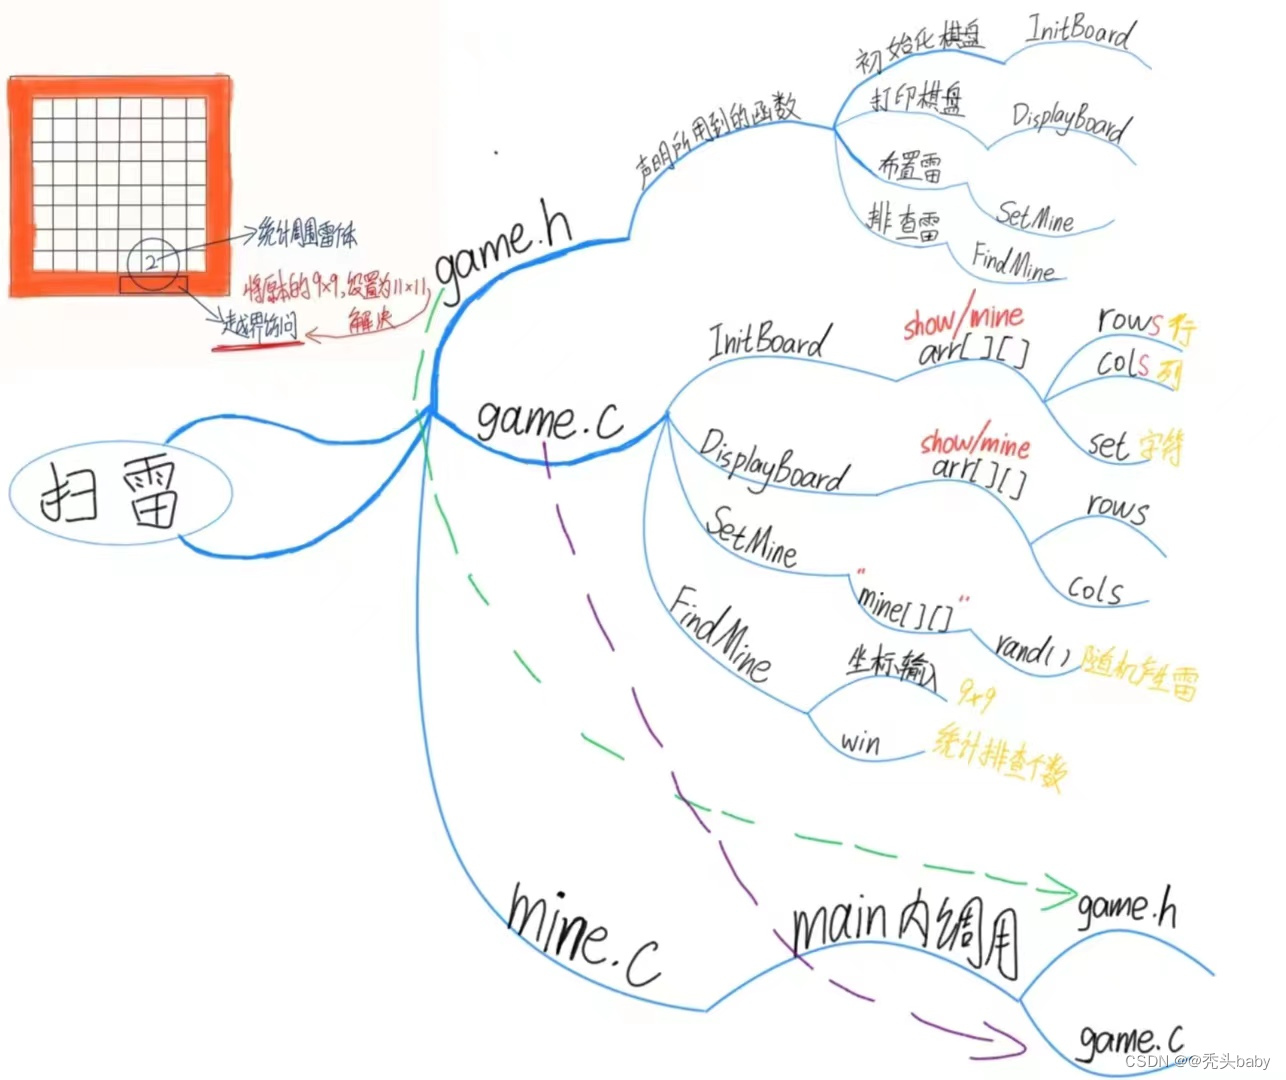 2
统计周围雷个体
将原本的9×9,设置为11×11,
解决
越界访问
扫雷
game.h
声明所用到的函数
初始化棋盘
InitBoard
打印棋盘
DisplayBoard
布置雷
SetMine
排查雷
FindMine
game.c
InitBoard
show/mine
arr[ ][ ]
rows 行
cols 列
set 字符
DisplayBoard
show/mine
arr[ ][ ]
rows
cols
SetMine
"mine[ ][ ]"
rand() 随机产生雷
FindMine
坐标输入
9×9
win
统计排查个数
mine.c
main内调用
game.h
game.c
CSDN @@秃头baby